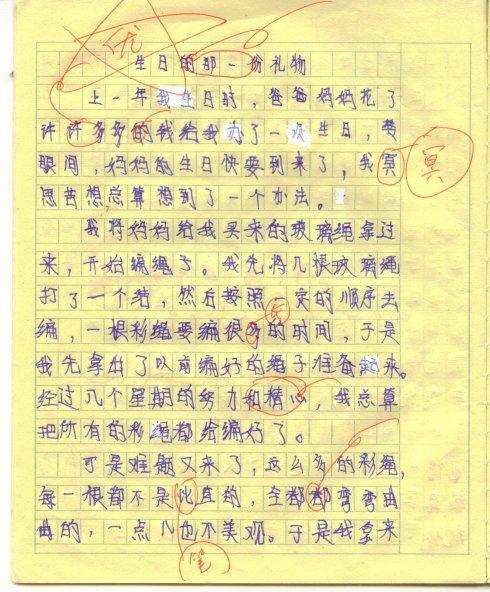 优
生日的那一份礼物
上一年我生日时，爸爸妈妈花了
许许多多的我给我办了一次生日，转
眼间，妈妈的生日快要到来了，我冥
冥
思苦想，总算想到了一个办法。
我将妈妈给我买来的玻璃绳拿过
来，开始编绳了。我先将几根玻璃绳
打了一个结，然后按照一定的顺序去
编，一根彩绳要编很多的时间，于是
长
我先拿出了以前编好的绳子准备起来。
经过几个星期的努力和精心，我总算
把所有的彩绳都给编好了。
可是难题又来了，这么多的彩绳，
每一根都不是的，全都都弯弯曲
曲的，一点儿也不美观。于是我拿来
(笔)